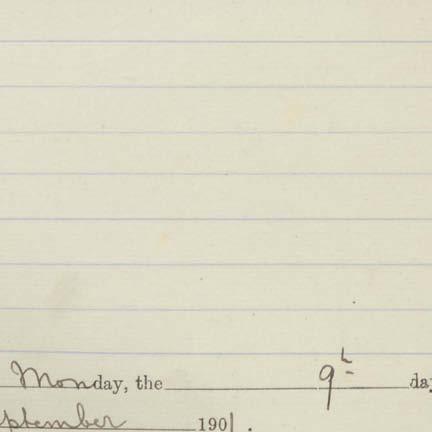 Monday, the 9th day
eptember 1901.